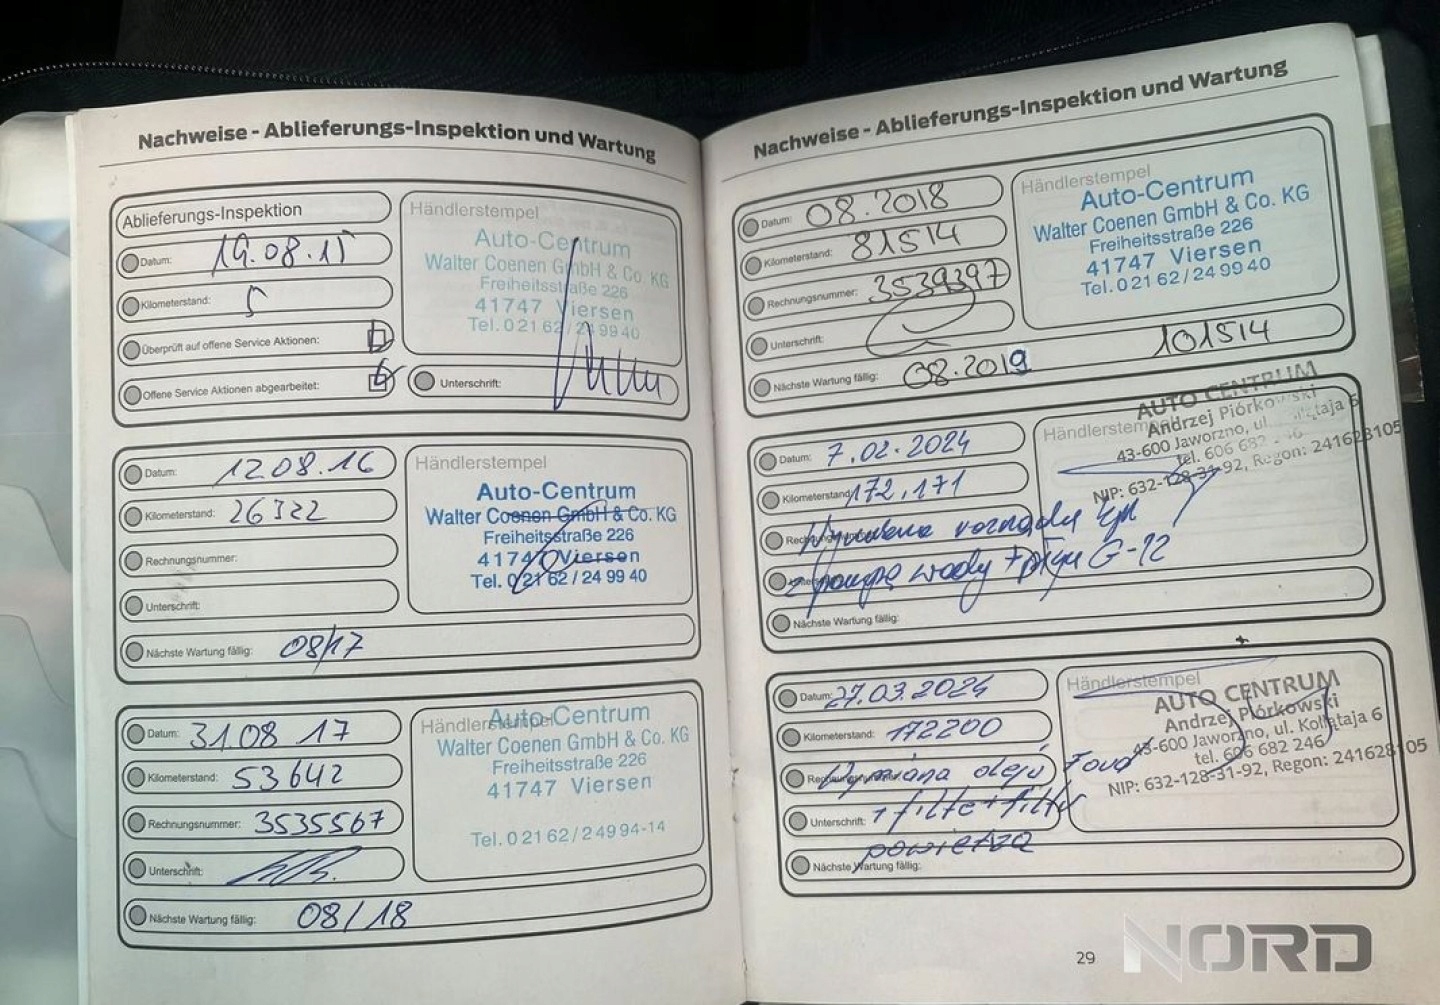 Nachweise - Ablieferungs-Inspektion und Wartung
Ablieferungs-Inspektion
Datum: 19.08.15
Kilometerstand: 5
Überprüft auf offene Service Aktionen:
Offene Service Aktionen abgearbeitet:
Händlerstempel
Auto-Centrum
Walter Coenen GmbH & Co. KG
Freiheitsstraße 226
41747 Viersen
Tel. 0 21 62 / 24 99 40
Unterschrift:
Datum: 12.08.16
Kilometerstand: 26322
Rechnungsnummer:
Unterschrift:
Nächste Wartung fällig: 08/17
Händlerstempel
Auto-Centrum
Walter Coenen GmbH & Co. KG
Freiheitsstraße 226
41747 Viersen
Tel. 0 21 62 / 24 99 40
Datum: 31.08 17
Kilometerstand: 53642
Rechnungsnummer: 3535567
Unterschrift:
Nächste Wartung fällig: 08/18
Händlerstempel
Auto-Centrum
Walter Coenen GmbH & Co. KG
Freiheitsstraße 226
41747 Viersen
Tel. 0 21 62 / 2 49 94-14
Nachweise - Ablieferungs-Inspektion und Wartung
Datum: 08.2018
Kilometerstand: 81514
Rechnungsnummer: 3539397
Unterschrift:
Nächste Wartung fällig: 08.2019 101514
Händlerstempel
Auto-Centrum
Walter Coenen GmbH & Co. KG
Freiheitsstraße 226
41747 Viersen
Tel. 0 21 62 / 24 99 40
Datum: 7.02.2024
Kilometerstand: 172,171
Rechnungsnummer:
Unterschrift:
pompę wody + płyn G-12
Nächste Wartung fällig:
Händlerstempel
AUTO CENTRUM
Andrzej Piórkowski
43-600 Jaworzno, ul. Kołłątaja 6
tel. 606 682
NIP: 632-128-31-92, Regon: 241628105
Datum: 27.03.2024
Kilometerstand: 172200
Rechnungsnummer:
Wymiana oleju Ford
Unterschrift: + filtr + filtr
powietrza
Nächste Wartung fällig:
Händlerstempel
AUTO CENTRUM
Andrzej Piórkowski
43-600 Jaworzno, ul. Kołłątaja 6
tel. 606 682 246
NIP: 632-128-31-92, Regon: 241628105
29
NORD